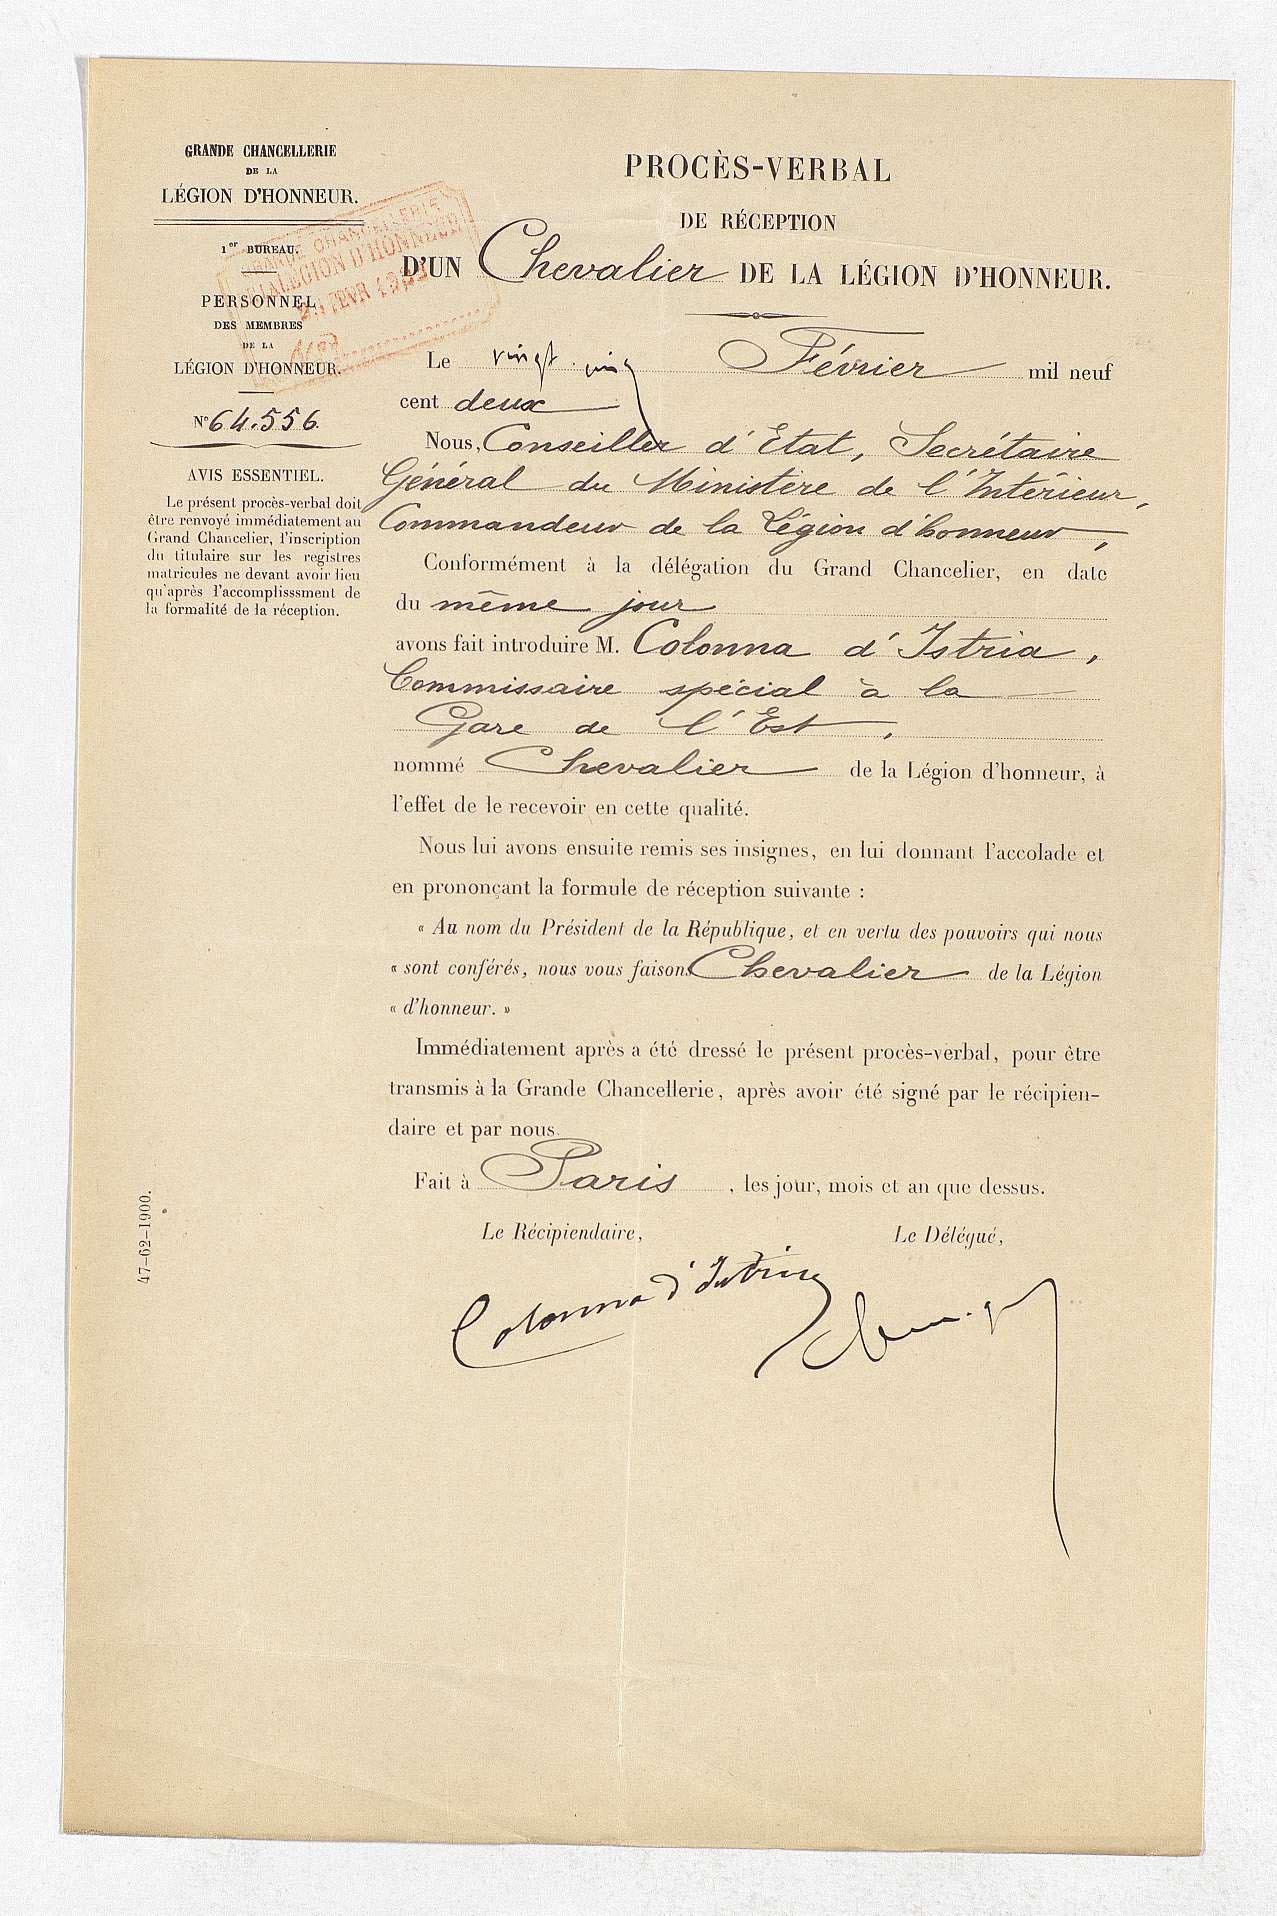 GRANDE CHANCELLERIE
DE LA
LÉGION D'HONNEUR.
1er BUREAU.
PERSONNEL
DES MEMBRES
DE LA
LÉGION D'HONNEUR.
N° 64.556.
AVIS ESSENTIEL.
Le présent procès-verbal doit
être renvoyé immédiatement au
Grand Chancelier, l'inscription
du titulaire sur les registres
matricules ne devant avoir lieu
qu'après l'accomplisssment de
la formalité de la réception.
47-62-1900.
GRANDE CHANCELLERIE
LÉGION D'HONNEUR
FEVR
PROCÈS-VERBAL
DE RÉCEPTION
D'UN Chevalier DE LA LÉGION D'HONNEUR.
Le vingt cinq Février mil neuf
cent deux
Nous, Conseiller d'Etat, Secrétaire
Général du Ministère de l'Intérieur,
Commandeur de la Légion d'honneur,
Conformément à la délégation du Grand Chancelier, en date
du même jour
avons fait introduire M. Colonna d'Istria,
Commissaire spécial à la
Gare de l'Est,
nommé Chevalier de la Légion d'honneur, à
l'effet de le recevoir en cette qualité.
Nous lui avons ensuite remis ses insignes, en lui donnant l'accolade et
en prononçant la formule de réception suivante :
« Au nom du Président de la République, et en vertu des pouvoirs qui nous
« sont conférés, nous vous faisons Chevalier de la Légion
« d'honneur. »
Immédiatement après a été dressé le présent procès-verbal, pour être
transmis à la Grande Chancellerie, après avoir été signé par le récipien-
daire et par nous.
Fait à Paris, les jour, mois et an que dessus.
Le Récipiendaire, Le Délégué,
Colonna d'Istria